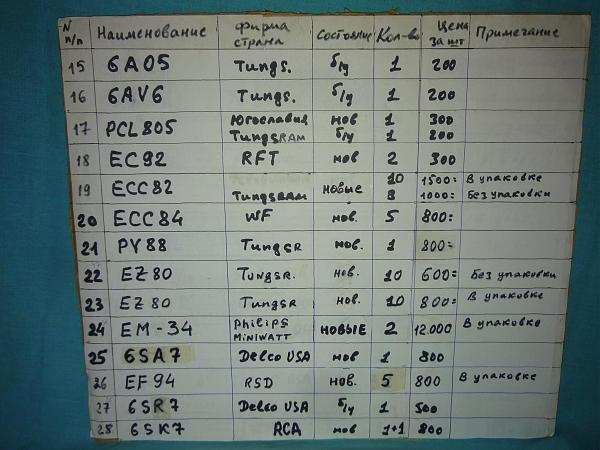 N п/п Наименование фирма страна Состояние Кол-во Цена за шт Примечание
15 6A05 Tungs. б/у 1 200
16 6AV6 Tungs. б/у 1 200
17 PCL805 Югославия нов 1 300
TungsRAM б/у 1 200
18 EC92 RFT нов 2 300
19 ECC82 новые 10 1500= В упаковке
TungsRAM 8 1000= Без упаковки
20 ECC84 WF нов. 5 800=
21 PY88 TungsR нов. 1 800=
22 EZ80 TungsR. нов. 10 600= Без упаковки
23 EZ80 TungsR нов. 10 800= В упаковке
24 EM-34 Philips MiNiWATT НОВЫЕ 2 12.000 В упаковке
25 6SA7 Delco USA нов 1 800
26 EF94 RSD нов. 5 800 В упаковке
27 6SR7 Delco USA б/у 1 500
28 6SK7 RCA нов 1+1 800